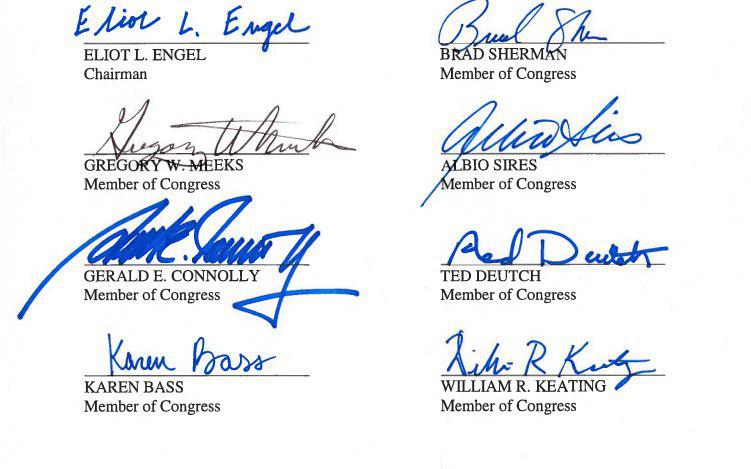 Eliot L. Engel
ELIOT L. ENGEL
Chairman
Brad Sherman
BRAD SHERMAN
Member of Congress
Gregory W. Meeks
GREGORY W. MEEKS
Member of Congress
Albio Sires
ALBIO SIRES
Member of Congress
GERALD E. CONNOLLY
Member of Congress
Ted Deutch
TED DEUTCH
Member of Congress
Karen Bass
KAREN BASS
Member of Congress
William R Keating
WILLIAM R. KEATING
Member of Congress